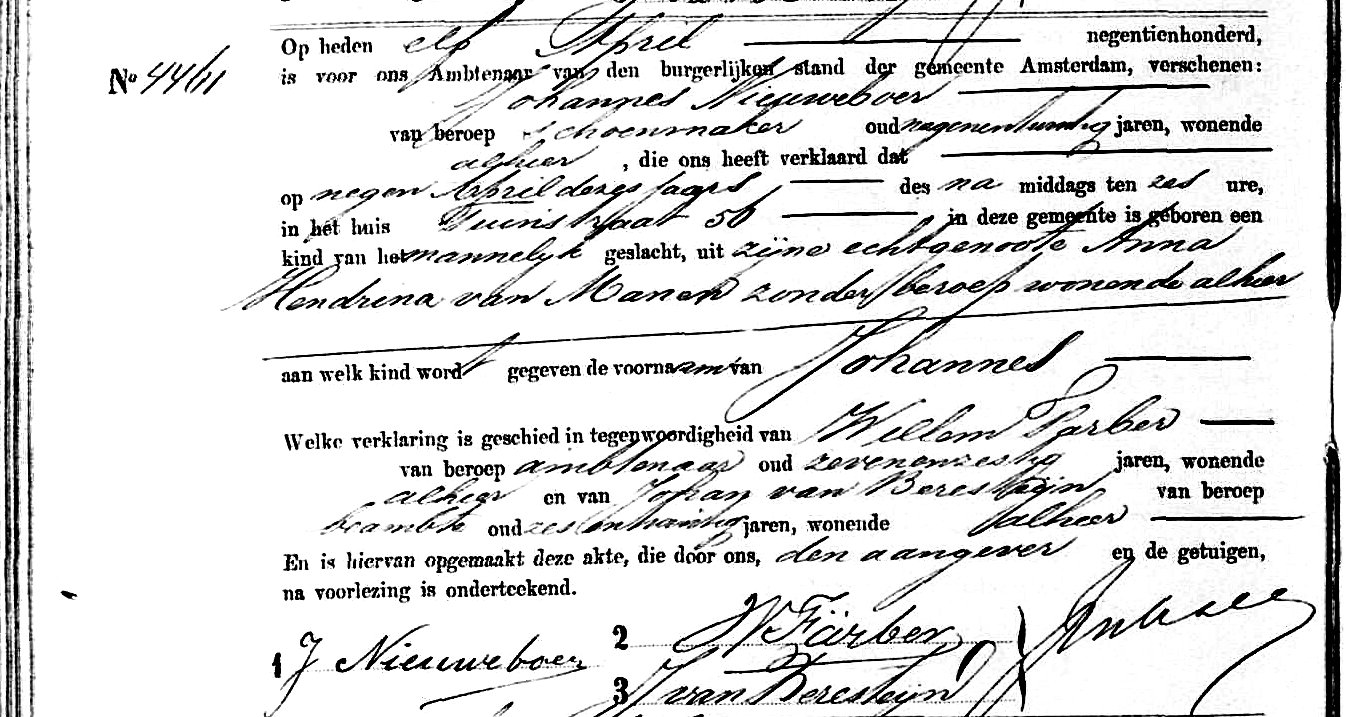 Op heden elf April negentienhonderd,
No 4411
is voor ons Ambtenaar van den burgerlijken stand der gemeente Amsterdam, verschenen:
Johannes Nieuweboer
van beroep schoenmaker oud negenentwintig jaren, wonende
alhier, die ons heeft verklaard dat
op negen April dezes jaars des na middags ten zes ure,
in het huis Tuinstraat 56 in deze gemeente is geboren een
kind van het mannelijk geslacht, uit zijne echtgenoote Anna
Hendrina van Manen zonder beroep wonende alhier
aan welk kind wordt gegeven de voornaam van Johannes
Welke verklaring is geschied in tegenwoordigheid van Willem Färber
van beroep ambtenaar oud zevenenzestig jaren, wonende
alhier en van Johan van Beresteijn van beroep
beambte oud jaren, wonende alhier
En is hiervan opgemaakt deze akte, die door ons, den aangever en de getuigen,
na voorlezing is onderteekend.
1 J Nieuweboer
2 W Färber
3 J van Beresteyn